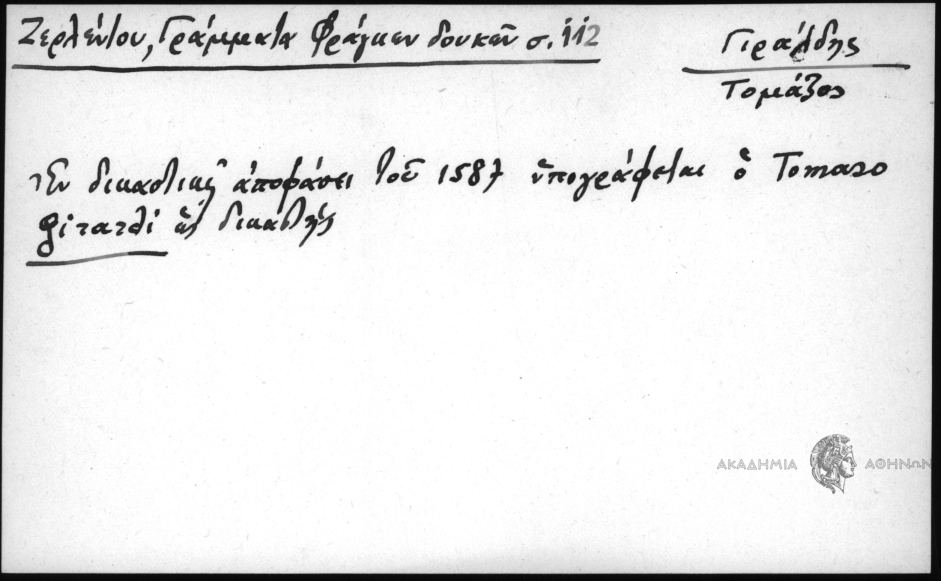 Ζερλέντου, Γράμματα Φράγκων δουκῶν σ. 112
Γιράλδης
Τομάζος
Ἐν δικαστικῇ ἀποφάσει τοῦ 1587 ὑπογράφεται ὁ Tomaso
girardi ὡς δικαστής
ΑΚΑΔΗΜΙΑ ΑΘΗΝΩΝ